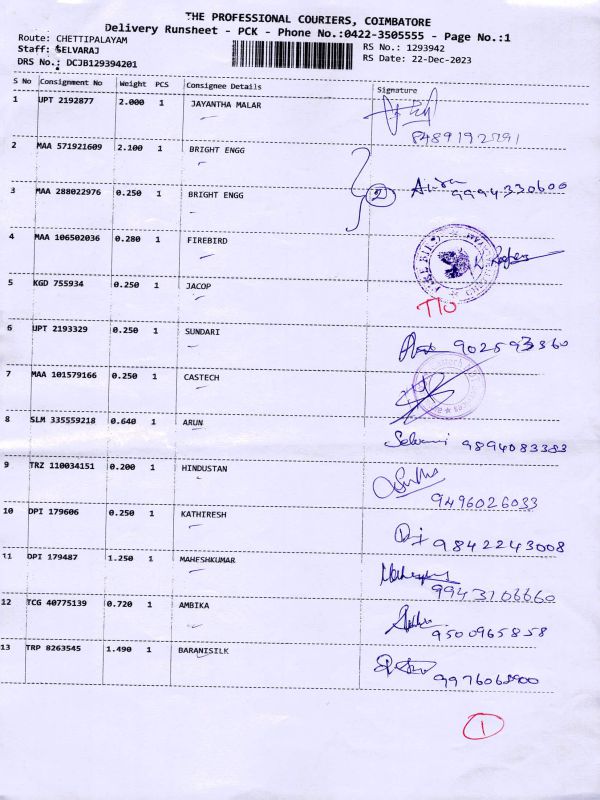 THE PROFESSIONAL COURIERS, COIMBATORE
Delivery Runsheet - PCK - Phone No.:0422-3505555 - Page No.:1
Route: CHETTIPALAYAM RS No.: 1293942
Staff: SELVARAJ RS Date: 22-Dec-2023
DRS No.: DCJB129394201
S No Consignment No Weight PCS Consignee Details Signature
1 UPT 2192877 2.000 1 JAYANTHA MALAR
2 MAA 571921609 2.100 1 BRIGHT ENGG
3 MAA 288022976 0.250 1 BRIGHT ENGG 2 9994330600
4 MAA 106502036 0.280 1 FIREBIRD
5 KGD 755934 0.250 1 JACOP
6 UPT 2193329 0.250 1 SUNDARI
7 MAA 101579166 0.250 1 CASTECH
8 SLM 335559218 0.640 1 ARUN Selvami
9 TRZ 110034151 0.200 1 HINDUSTAN 9496026033
10 DPI 179606 0.250 1 KATHIRESH 9842243008
11 DPI 179487 1.250 1 MAHESHKUMAR 9943106660
12 TCG 40775139 0.720 1 AMBIKA 9500965858
13 TRP 8263545 1.490 1 BARANISILK
1